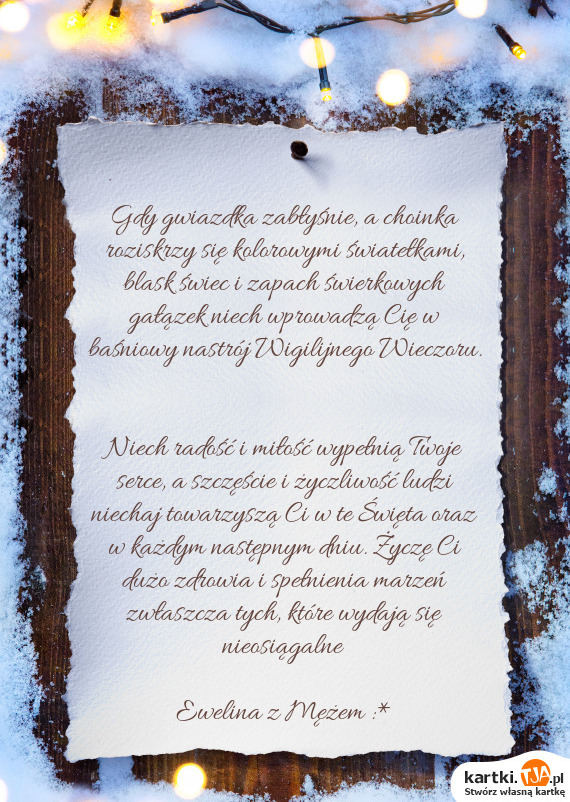 Gdy gwiazdka zabłyśnie, a choinka
roziskrzy się kolorowymi światełkami,
blask świec i zapach świerkowych
gałązek niech wprowadzą Cię w
baśniowy nastrój Wigilijnego Wieczoru.
Niech radość i miłość wypełnią Twoje
serce, a szczęście i życzliwość ludzi
niechaj towarzyszą Ci w te Święta oraz
w każdym następnym dniu. Życzę Ci
dużo zdrowia i spełnienia marzeń
zwłaszcza tych, które wydają się
nieosiągalne
Ewelina z Mężem :*
kartki.TJA.pl
Stwórz własną kartkę